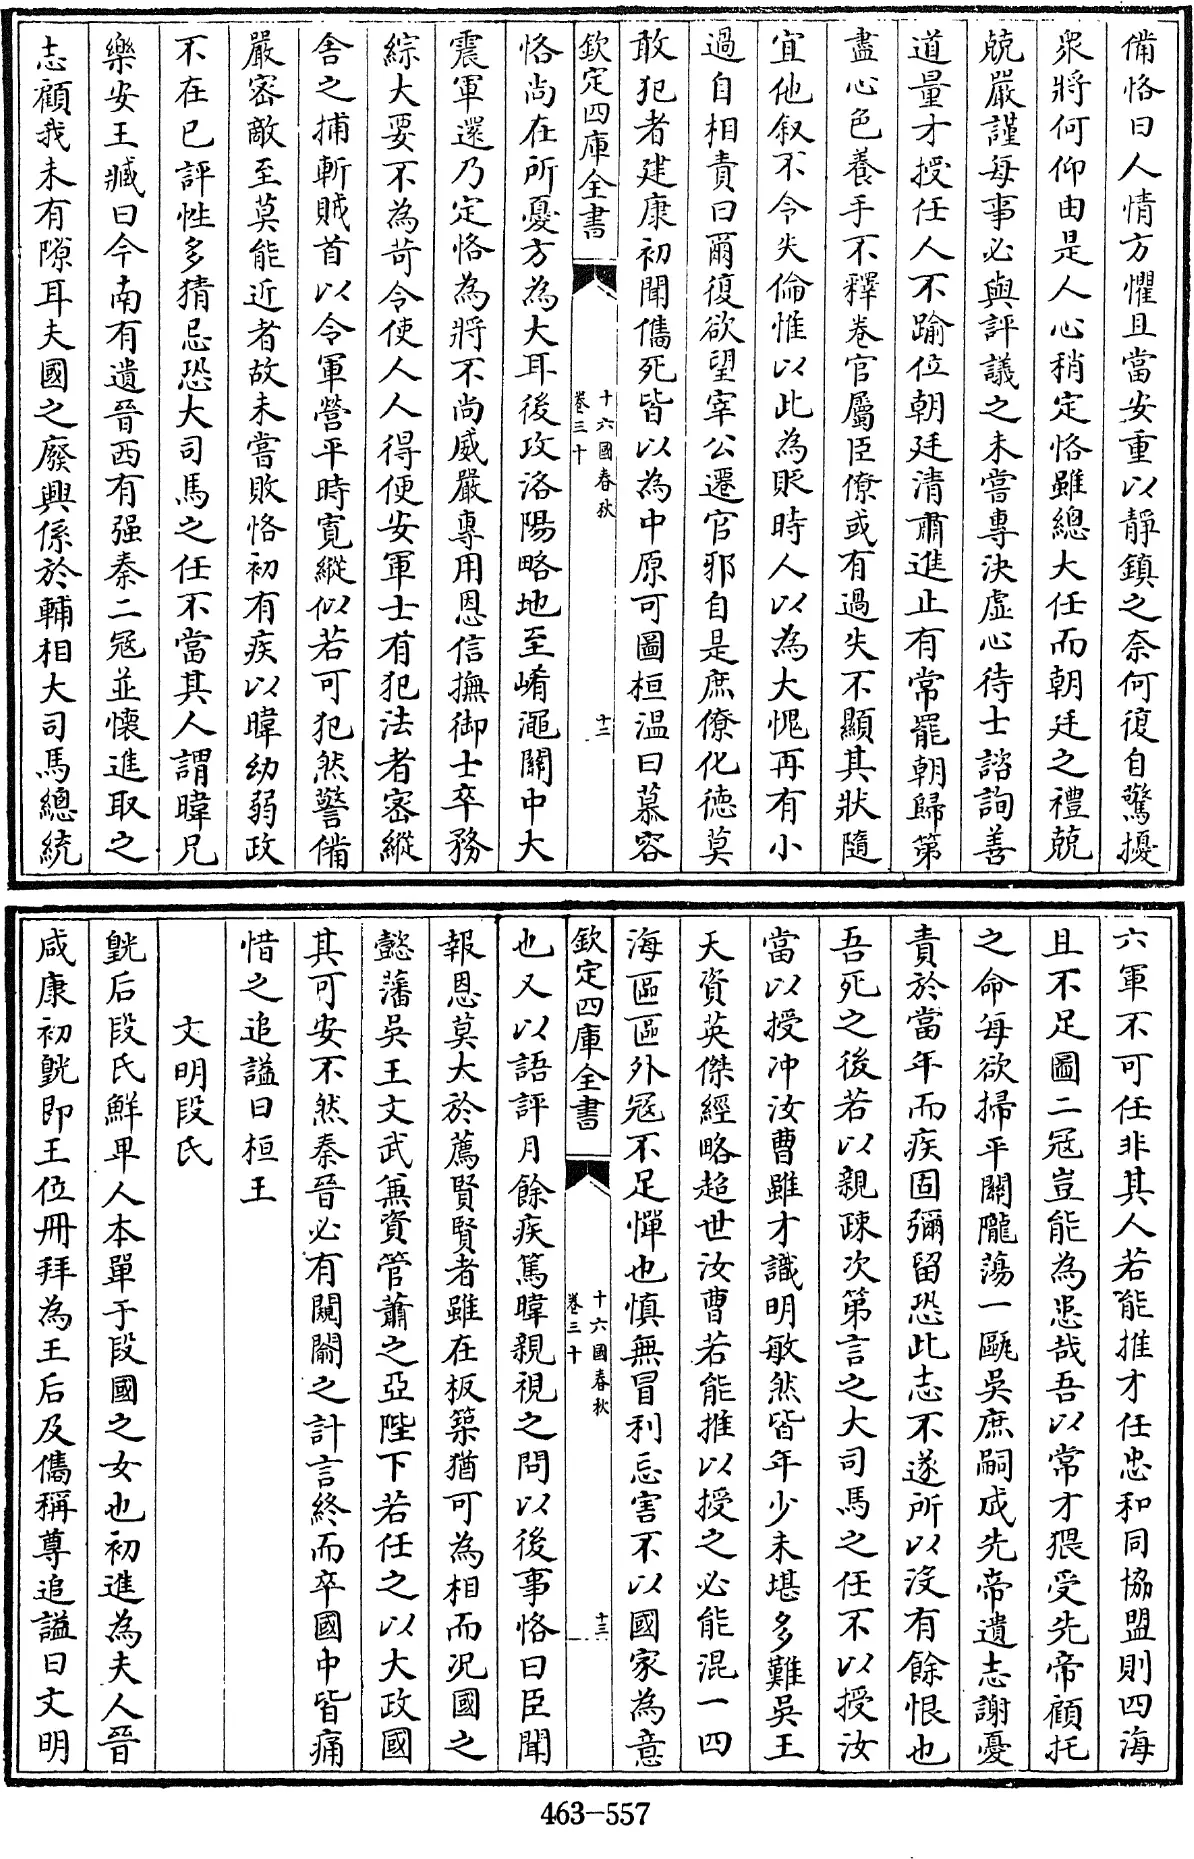 備恪曰人情方懼且當安重以靜鎮之奈何復自驚擾
衆將何仰由是人心稍定恪雖總大任而朝廷之禮兢
兢嚴謹每事必與評議之未嘗專決虚心待士諮詢善
道量才授任人不踰位朝廷清肅進止有常罷朝歸第
盡心色養手不釋卷官屬臣僚或有過失不顯其狀隨
宜他叙不令失倫惟以此為貶時人以為大愧再有小
過自相責曰爾復欲望宰公遷官邪自是庶僚化徳莫
敢犯者建康初聞儁死皆以為中原可圖桓温曰慕容
欽定四庫全書
十六國春秋
卷三十
十二
恪尚在所憂方為大耳後攻洛陽略地至崤澠關中大
震軍還乃定恪為將不尚威嚴專用恩信撫御士卒務
綜大要不為苛令使人人得便安軍士有犯法者密縱
舍之捕斬賊首以令軍營平時寛縱似若可犯然警備
嚴密敵至莫能近者故未嘗敗恪初有疾以暐幼弱政
不在已評性多猜忌恐大司馬之任不當其人謂暐兄
樂安王臧曰今南有遺晉西有强秦二冦並懷進取之
志顧我未有隙耳夫國之廢興係於輔相大司馬總統
六軍不可任非其人若能推才任忠和同協盟則四海
且不足圖二冦豈能為患哉吾以常才猥受先帝顧托
之命每欲掃平關隴蕩一甌吳庶嗣成先帝遺志謝憂
責於當年而疾固彌留恐此志不遂所以沒有餘恨也
吾死之後若以親疎次第言之大司馬之任不以授汝
當以授冲汝曹雖才識明敏然皆年少未堪多難吳王
天資英傑經略超世汝曹若能推以授之必能混一四
海區區外冦不足憚也慎無冒利忘害不以國家為意
欽定四庫全書
十六國春秋
卷三十
十三
也又以語評月餘疾篤暐親視之問以後事恪曰臣聞
報恩莫大於薦賢賢者雖在板築猶可為相而况國之
懿藩吳王文武兼資管蕭之亞陛下若任之以大政國
其可安不然秦晉必有闚𨵦之計言終而卒國中皆痛
惜之追謚曰桓王
文明段氏
皝后段氏鮮卑人本單于段國之女也初進為夫人晉
咸康初皝即王位冊拜為王后及儁稱尊追謚曰文明
463-557